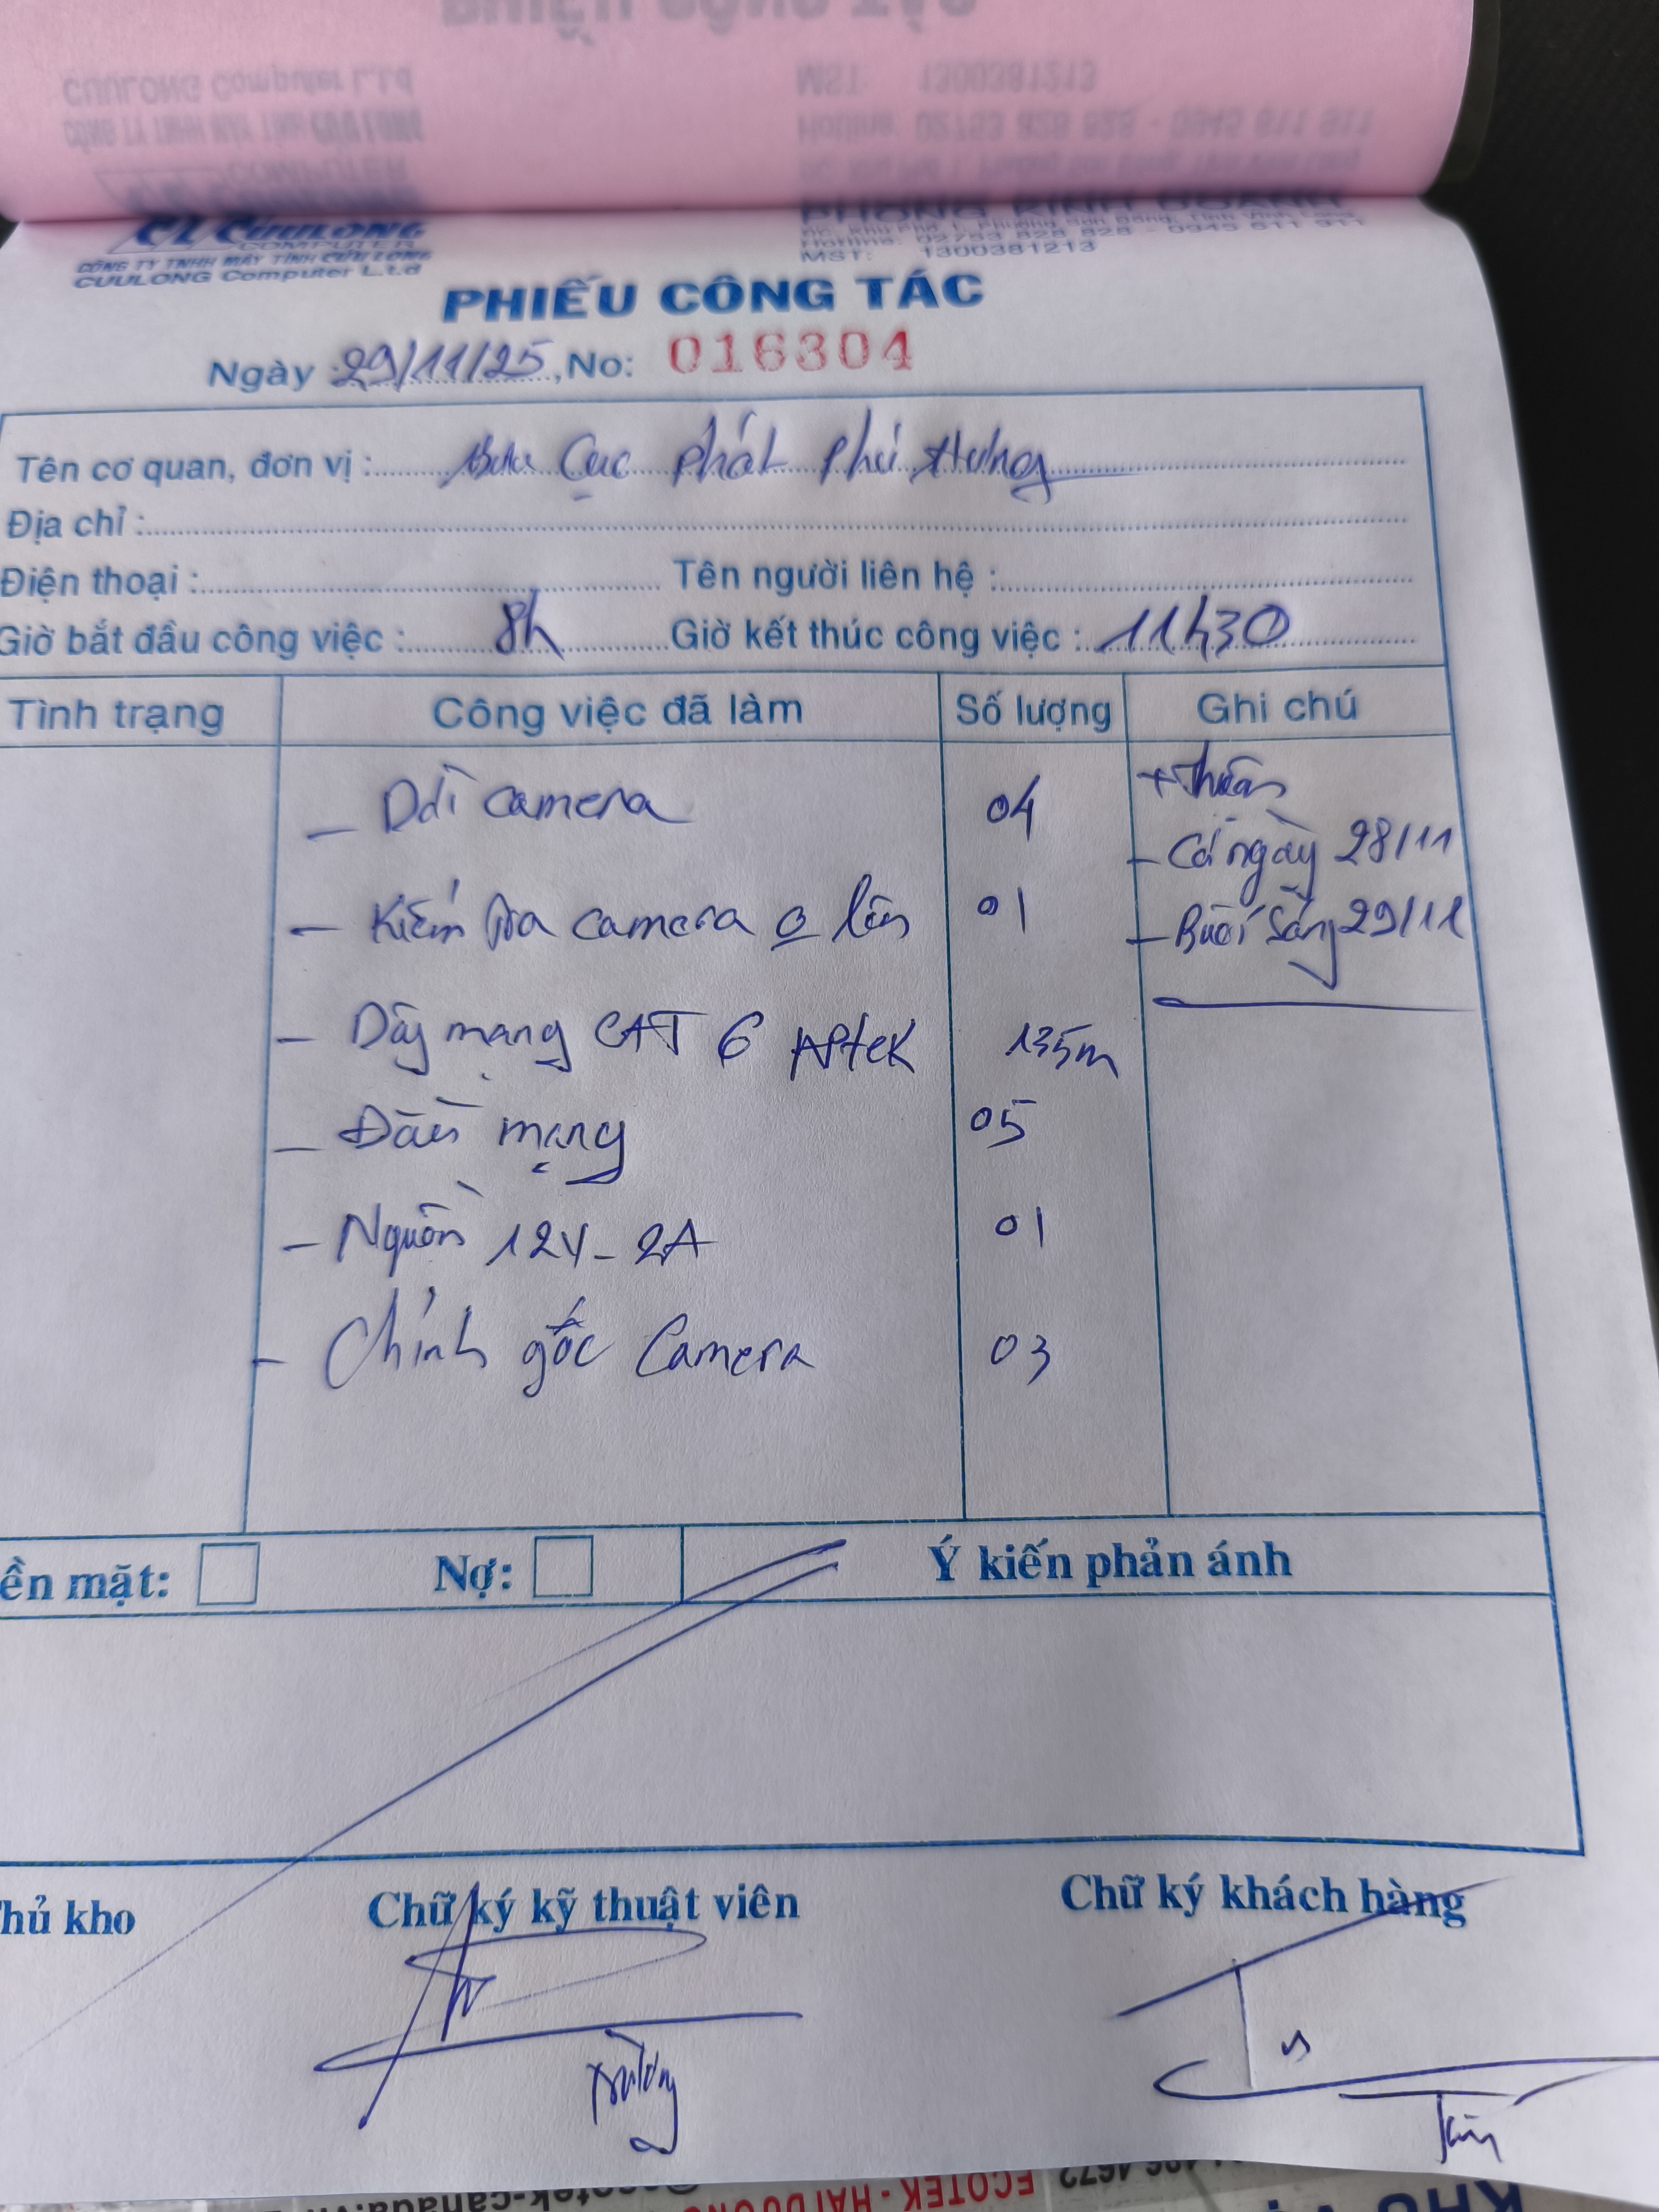 CUULONG
COMPUTER
CÔNG TY TNHH MÁY TÍNH CỬU LONG
CUULONG Computer L.t.d
PHÒNG KINH DOANH
Hotline: 02753 828 828 - 0945 611 911
MST: 1300381213
PHIẾU CÔNG TÁC
Ngày : 29/11/25, No: 016304
Tên cơ quan, đơn vị : Bưu Cục Phát Phú Hưng
Địa chỉ :
Điện thoại : Tên người liên hệ :
Giờ bắt đầu công việc : 8h Giờ kết thúc công việc : 11h30
Tình trạng Công việc đã làm Số lượng Ghi chú
- Dời camera 04
- Kiểm tra camera 01
- Dây mạng CAT 6 APtek 135m
- Đầu mạng 05
- Nguồn 12V - 2A 01
- Chỉnh góc Camera 03
- Cả ngày 28/11
- Buổi Sáng 29/11
ền mặt: Nợ: Ý kiến phản ánh
hủ kho Chữ ký kỹ thuật viên Chữ ký khách hàng
Trường
ECOTEK - HẢI DƯƠNG